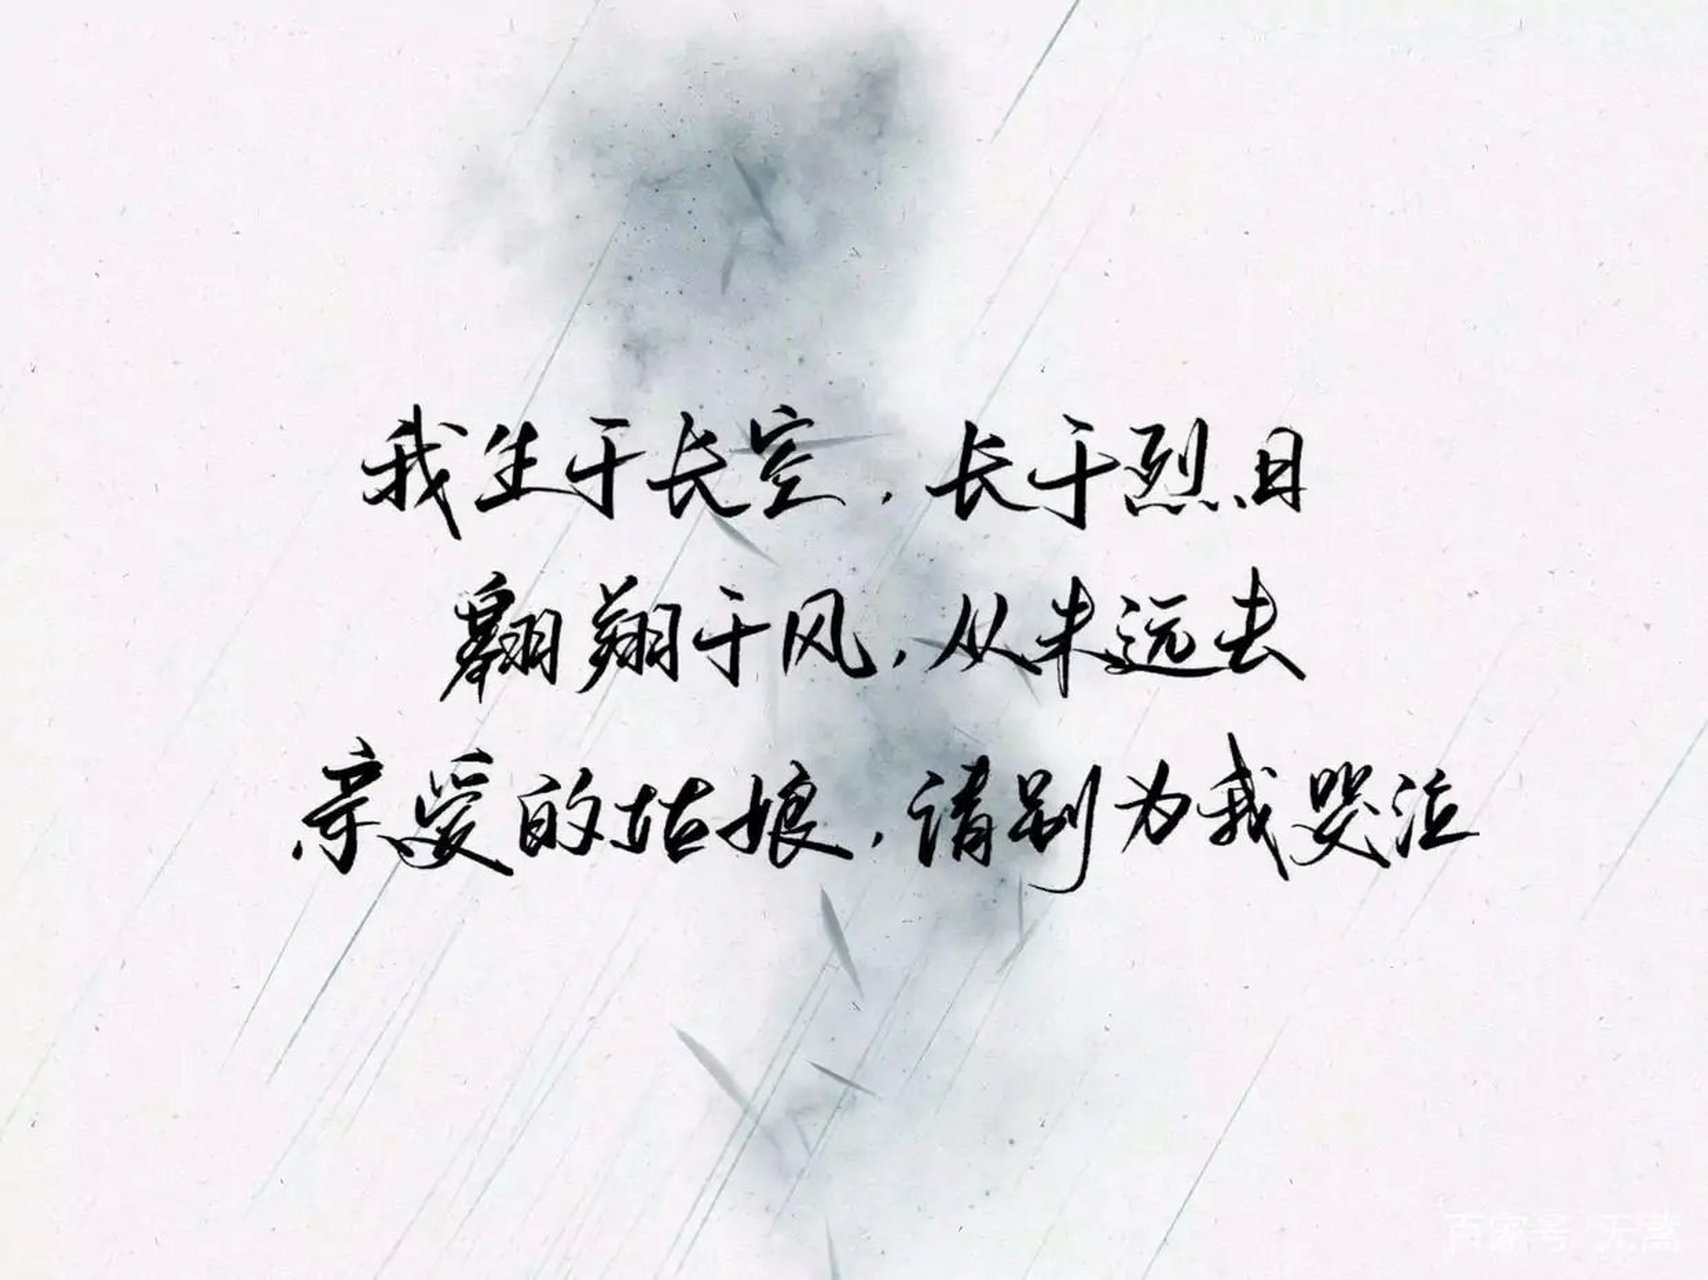 我生于长空，长于烈日
翱翔于风，从未远去
亲爱的姑娘，请别为我哭泣
百家号/无嵩